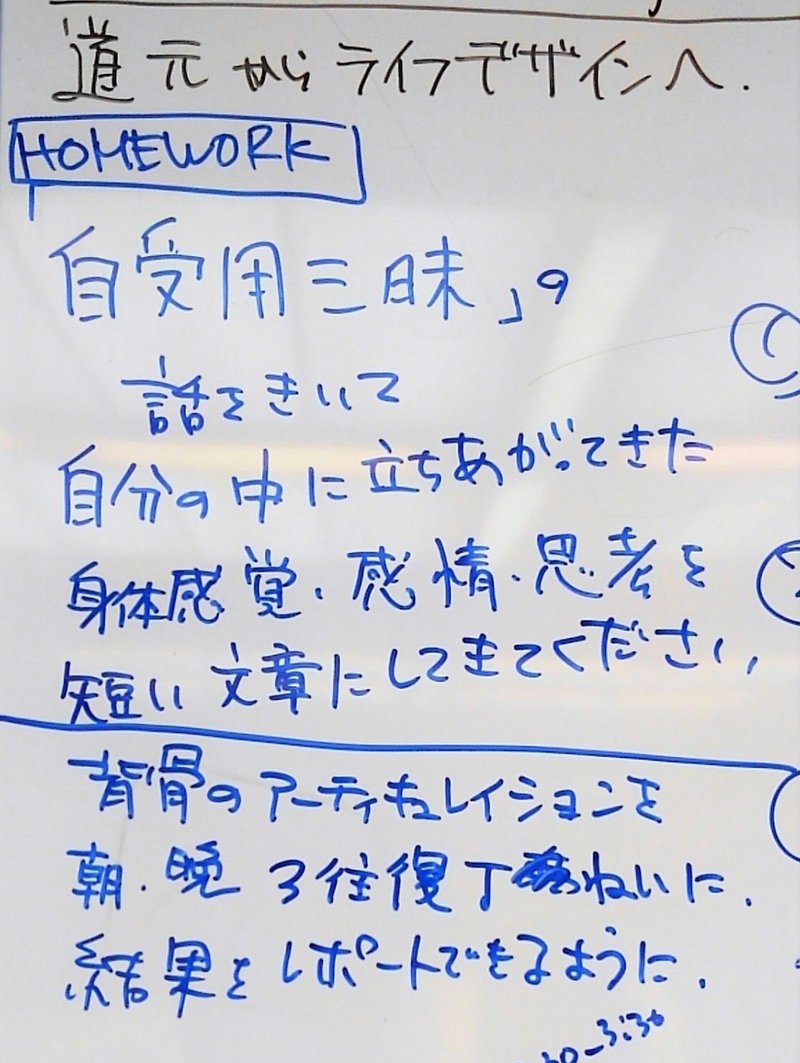 道元からライフデザインへ.
HOMEWORK
自受用三昧」の
話をきいて
自分の中に立ちあがってきた
身体感覚・感情・思考を
短い文章にしてきてください
背骨のアーティキュレイションを
朝・晩 3往復丁ねいに.
結果をレポートできるように.
30-3:30